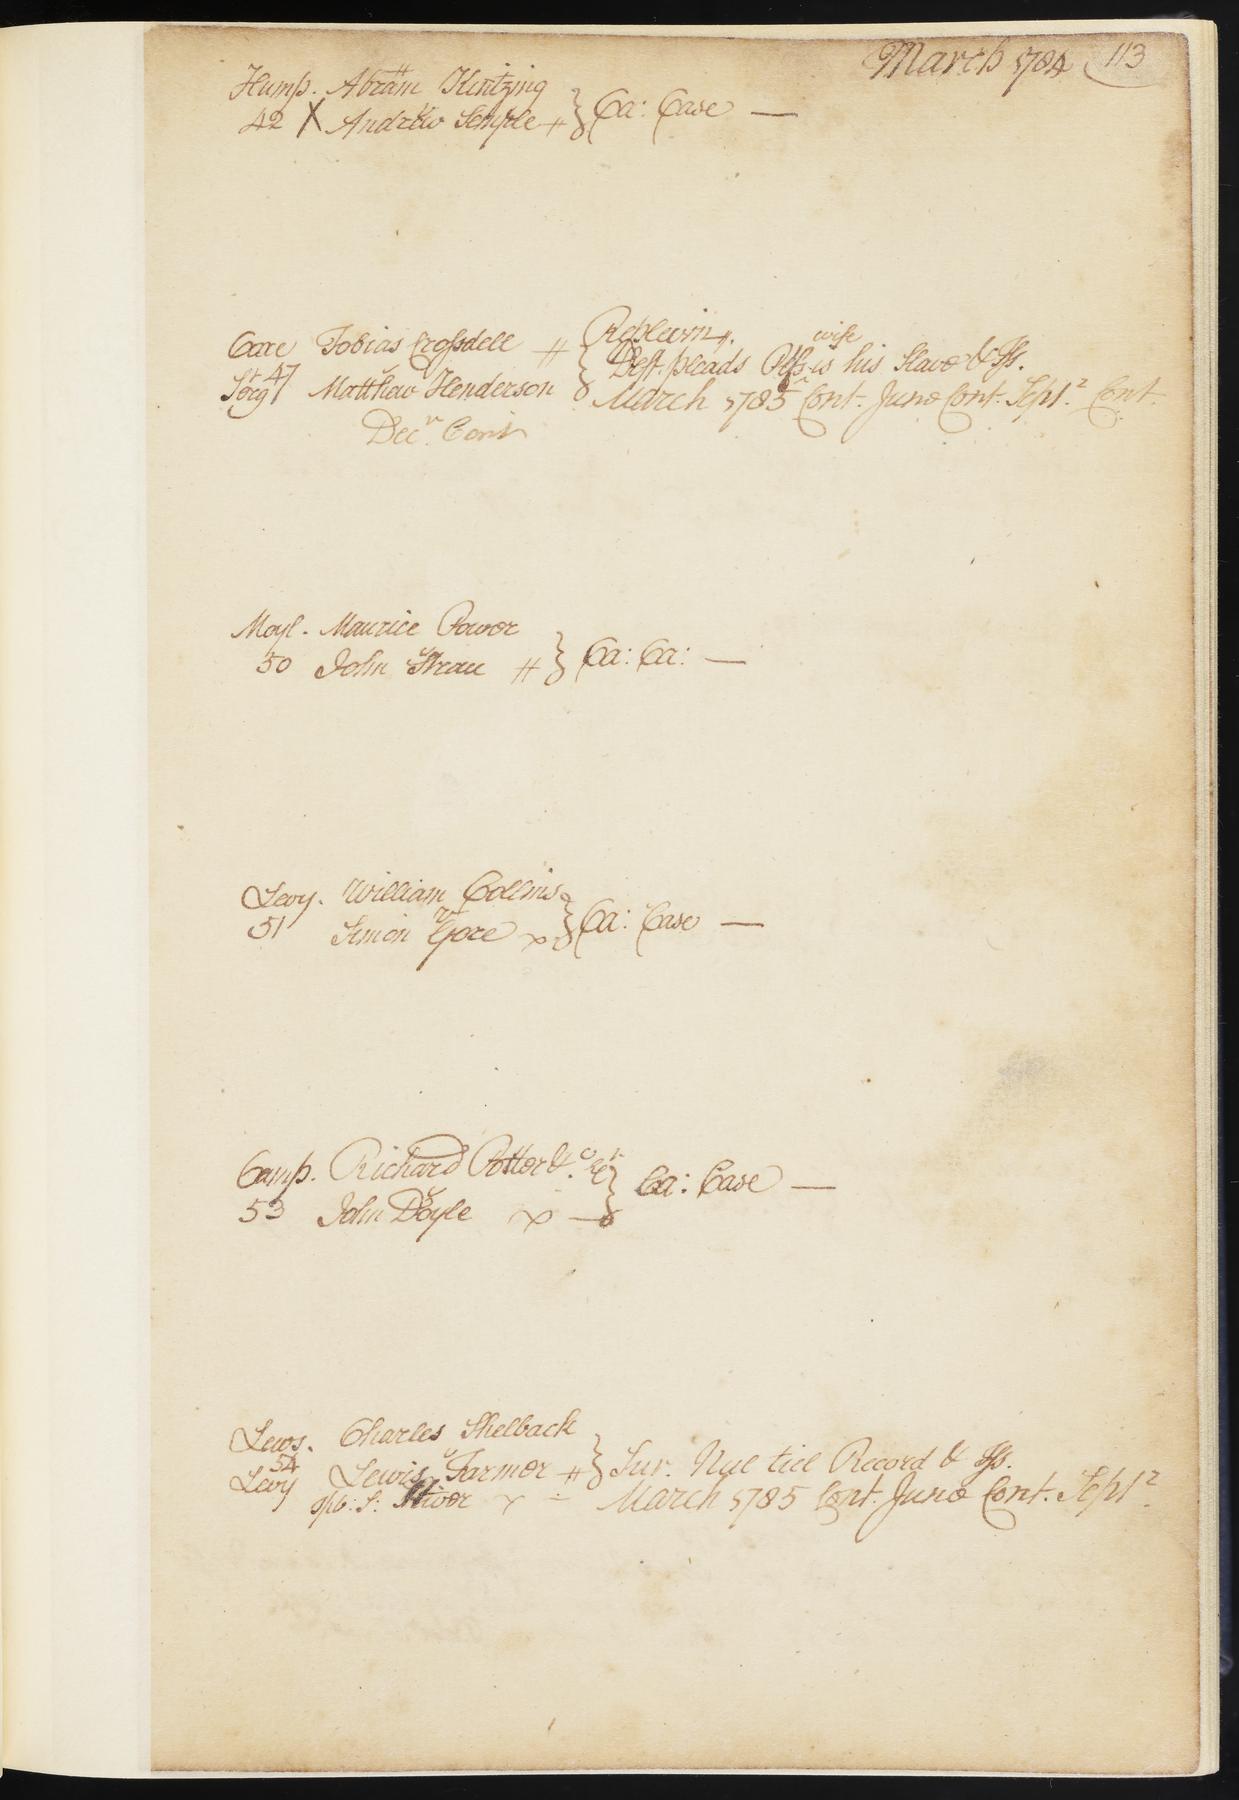 March 1784 113
Hump. Abram Kintzing
42 X Andrew Semple } Ca: Case —
Coxe Tobias Crossdell Replevin
Deft. pleads Pltfs wife is his Slave & Iss.
Serg.t 47 Matthew Henderson March 1785 Cont. June Cont. Sept.r Cont.
Dec.r Cont
Moyl. Maurice Power
50 John } Ca: Ca: —
Levy. William Collins
51 Simon Gore } Ca: Case —
Camp. Richard Potter &
53 John Doyle } Ca: Case —
Lews. Charles Shelback
54
Levy Lewis Farmer } Sur. Nul tiel Record & Iss.
March 1785 Cont. June Cont. Sept.r